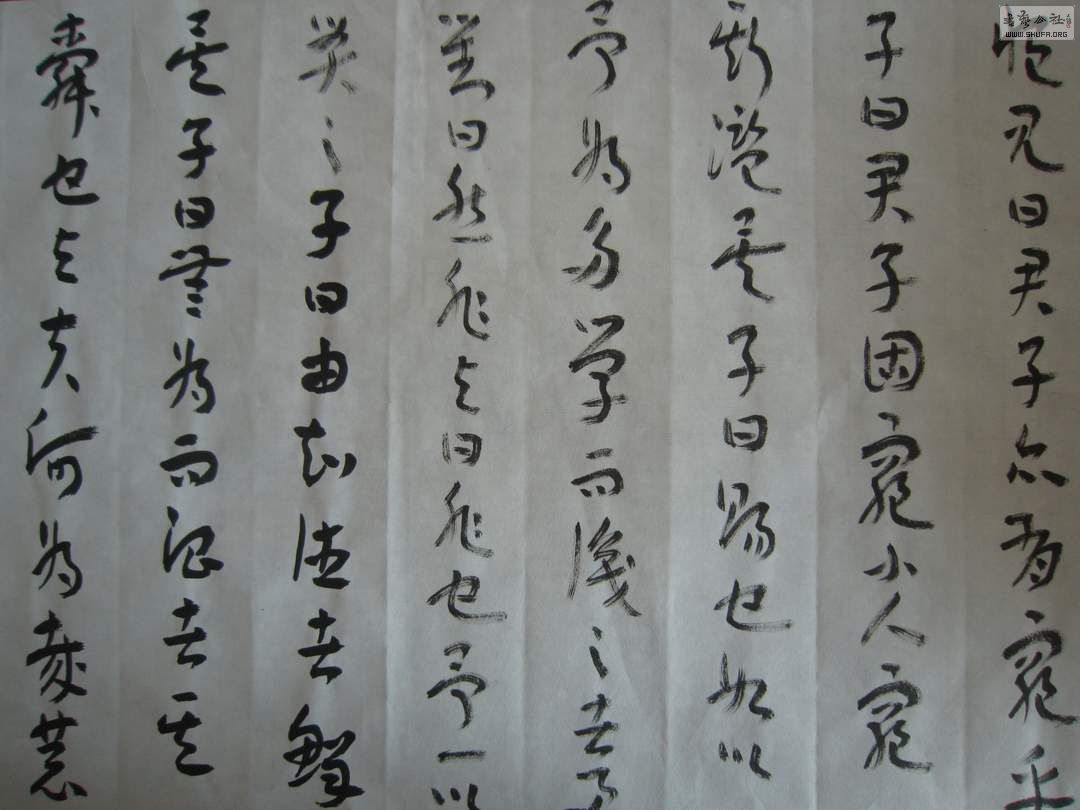 愠见曰君子亦有窮乎
子曰君子固窮小人窮
斯濫矣子曰賜也如以
予為多學而識之者
對曰然非与曰非也予一以
貫之子曰由知德者鮮
矣子曰無為而治者其
舜也与夫何為哉恭
書法公社
WWW.SHUFA.ORG